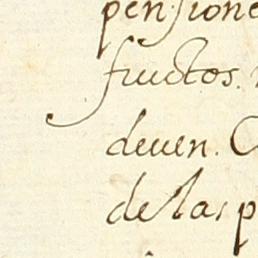 pensione
fructos.
deuen. C
de las p